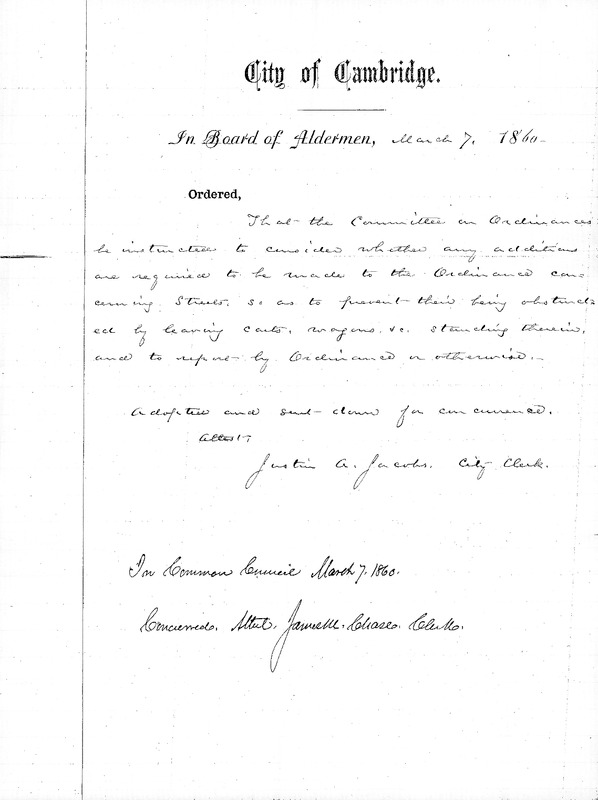 City of Cambridge.
In Board of Aldermen, March 7, 1860
Ordered,
That the Committee on Ordinances
be instructed to consider whether any additions
are required to be made to the Ordinance con-
cerning Streets, so as to prevent their being obstruct-
ed by leaving carts, wagons, &c. standing therein,
and to report by Ordinance or otherwise.
Adopted and sent down for concurrence.
Attest;
Justin A. Jacobs, City Clerk.
In Common Council March 7, 1860.
Concurred. Attest, James M. Chase. Clerk.